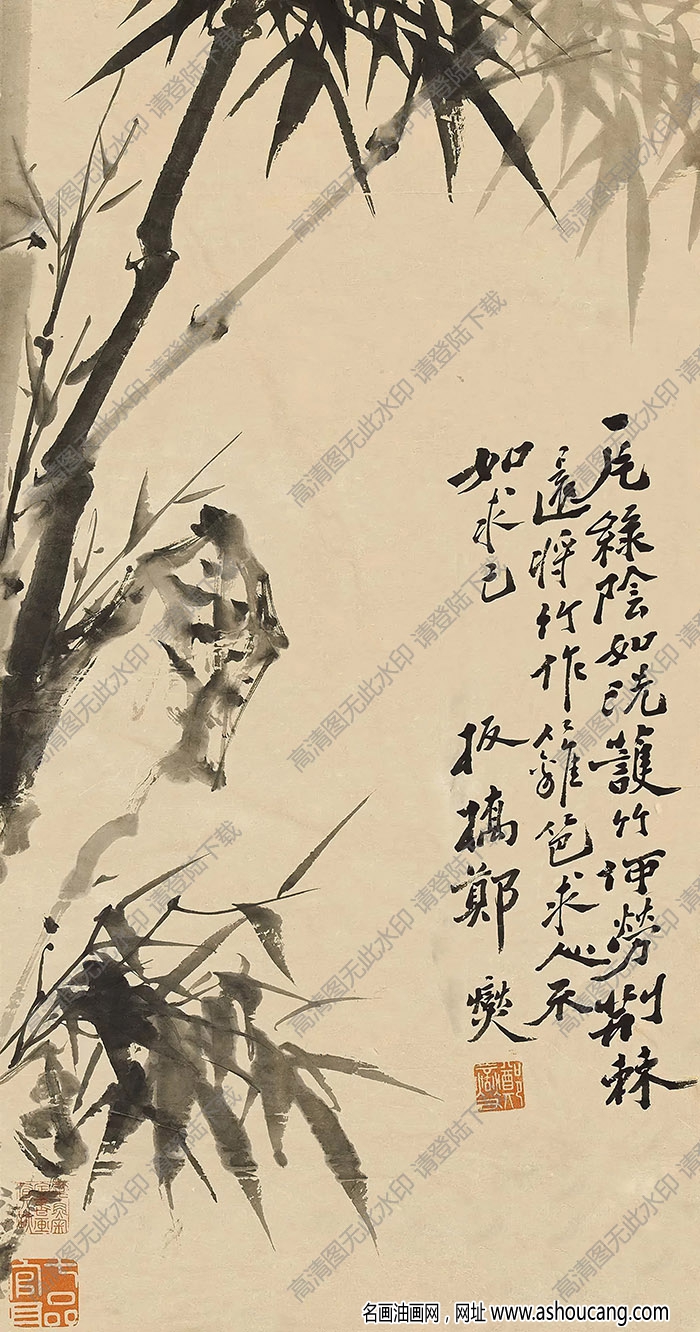 一片綠陰如洗護竹何勞荆棘
還將竹作籬笆求人不
如求己
板橋鄭燮
七品官耳
高清图无此水印 请登陆下载
名画油画网，网址 www.ashoucang.com